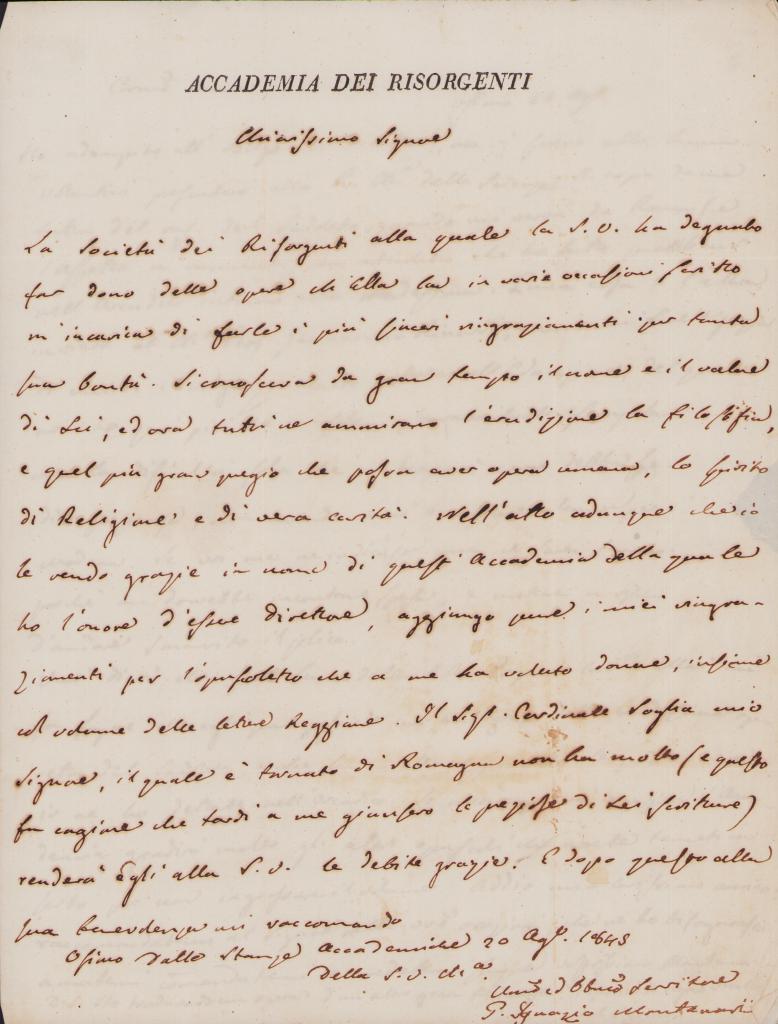 ACCADEMIA DEI RISORGENTI
Chiarissimo Signore
La Società dei Risorgenti alla quale la S. V. ha degnato
far dono delle opere ch'Ella ha in varie occasioni scritto
m'incarica di farle i più sinceri ringraziamenti per tanta
sua bontà. Si conosceva da gran tempo il nome e il valore
di Lei, ed ora tutti ne ammirano l'erudizione la filosofia,
e quel più gran pregio che possa aver opera umana, lo spirito
di Religione e di vera carità. Nell'atto adunque che io
le rendo grazie in nome di quest'Accademia della quale
ho l'onore d'essere Direttore, aggiungo pure i miei ringra-
ziamenti per l'opuscoletto che a me ha voluto donare, insieme
col volume delle lettere Reggiane. Il Sigr. Cardinale Soglia mio
Signore, il quale è tornato di Romagna non ha molto (e questo
fu cagione che tardi a me giunsero le pregiose di Lei scritture)
renderà Egli alla S. V. le debite grazie. E dopo questo alla
sua benevolenza mi raccomando
Osimo Dalle Stanze Accademiche 20 Ago. 1848
Della S. V. Ch.a
Umo ed Obbmo Servitore
P. Ignazio Montanari